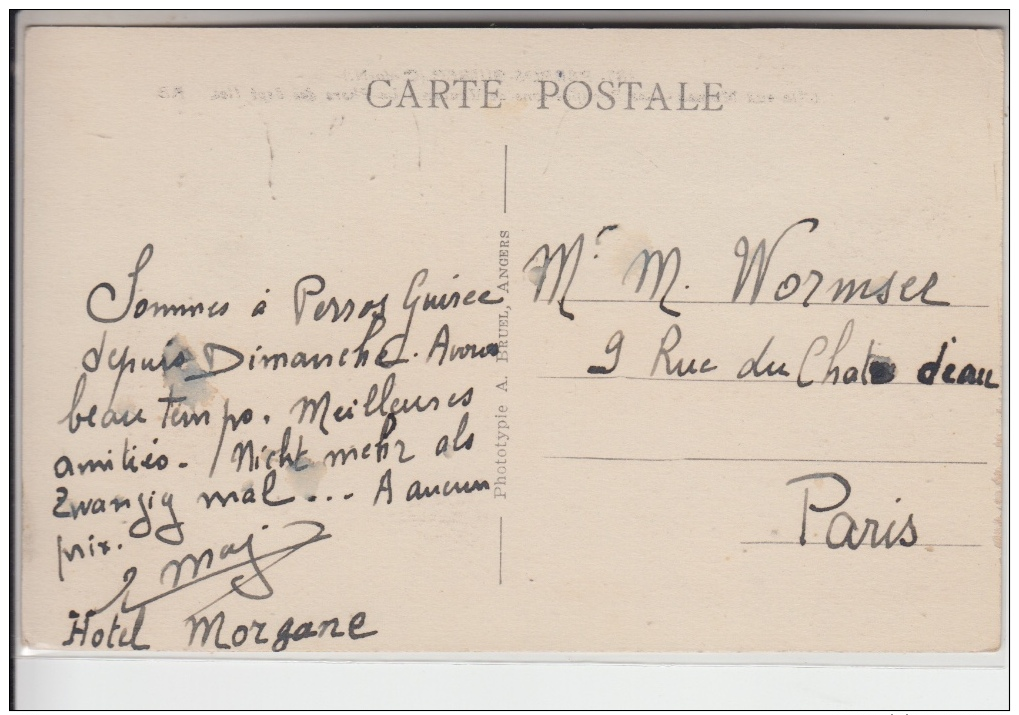 CARTE POSTALE
Sommes à Perros Guirec
depuis Dimanche. Avons
beau temps. Meilleures
amitiés. Nicht mehr als
Zwanzig mal ... A aucun
prix.
Hotel Morgane
Phototypie A. BRUEL, ANGERS
Mr. M. Wormser
9 Rue du Chat d'eau
Paris